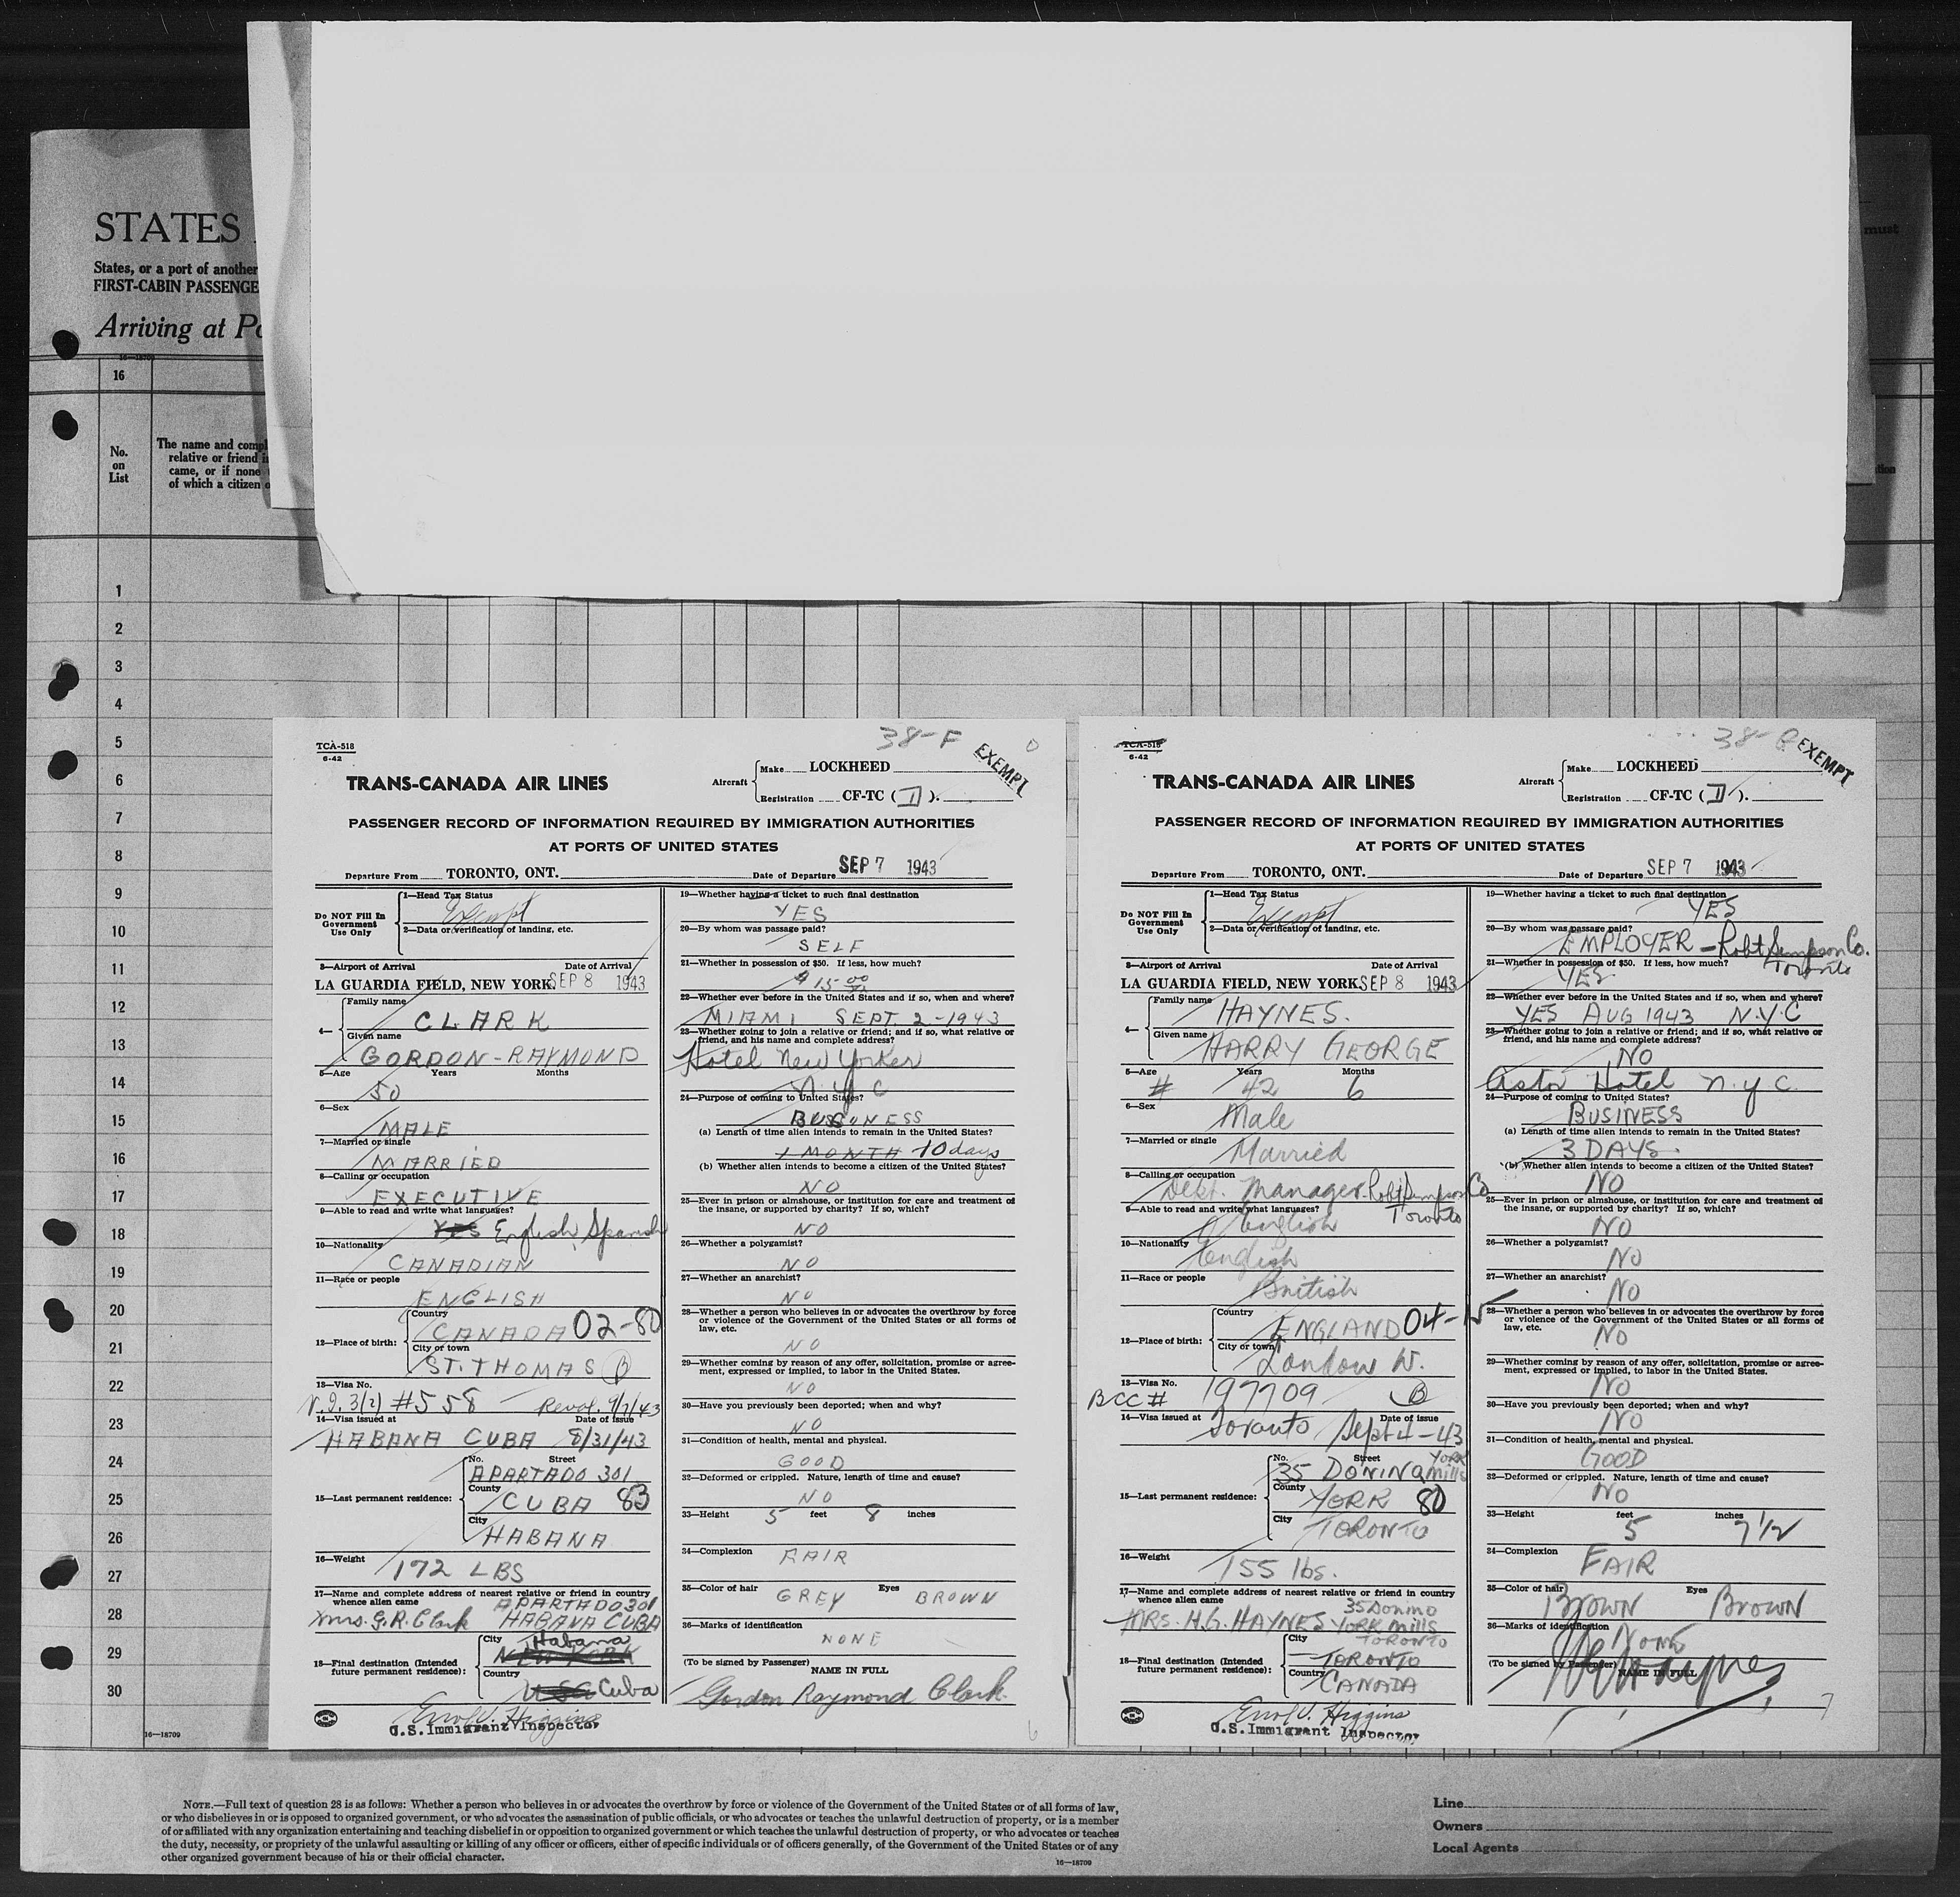 STATES
States, or a port of another
FIRST-CABIN PASSENGE
Arriving at Po
must
16
No.
on
List
The name and compl
relative or friend i
came, or if none
of which a citizen o
1
2
3
4
5
6
7
8
9
10
11
12
13
14
15
16
17
18
19
20
21
22
23
24
25
26
27
28
29
30
16—18709
TCA-518
6-42
38-F
EXEMPT
TRANS-CANADA AIR LINES
Aircraft
Make LOCKHEED
Registration CF-TC ( I ).
PASSENGER RECORD OF INFORMATION REQUIRED BY IMMIGRATION AUTHORITIES
AT PORTS OF UNITED STATES
Departure From TORONTO, ONT. Date of Departure SEP 7 1943
Do NOT Fill In
Government
Use Only
1—Head Tax Status
Exempt
2—Data or verification of landing, etc.
3—Airport of Arrival Date of Arrival
LA GUARDIA FIELD, NEW YORK SEP 8 1943
4—
Family name
CLARK
Given name
GORDON-RAYMOND
5—Age Years Months
50
6—Sex
MALE
7—Married or single
MARRIED
8—Calling or occupation
EXECUTIVE
9—Able to read and write what languages?
YES English, Spanish
10—Nationality
CANADIAN
11—Race or people
ENGLISH
12—Place of birth:
Country
CANADA 02-80
City or town
ST. THOMAS B
13—Visa No.
V.I. 3(2) #558 — Reval. 9/7/43
14—Visa issued at Date of issue
HABANA CUBA 8/31/43
15—Last permanent residence:
No. Street
APARTADO 301
County
CUBA 83
City
HABANA
16—Weight
172 LBS
17—Name and complete address of nearest relative or friend in country
whence alien came APARTADO 301
Mrs. G.R. Clark HABANA CUBA
18—Final destination (Intended
future permanent residence):
City Habana
NEW YORK
Country
USA Cuba
Errol V. Higgins
U.S. Immigrant Inspector
19—Whether having a ticket to such final destination
YES
20—By whom was passage paid?
SELF
21—Whether in possession of $50. If less, how much?
$15.00
22—Whether ever before in the United States and if so, when and where?
MIAMI SEPT 2-1943
23—Whether going to join a relative or friend; and if so, what relative or
friend, and his name and complete address?
Hotel New Yorker
N.Y.C
24—Purpose of coming to United States?
BUSINESS
(a) Length of time alien intends to remain in the United States?
1 MONTH 10 days
(b) Whether alien intends to become a citizen of the United States?
NO
25—Ever in prison or almshouse, or institution for care and treatment of
the insane, or supported by charity? If so, which?
NO
26—Whether a polygamist?
NO
27—Whether an anarchist?
NO
28—Whether a person who believes in or advocates the overthrow by force
or violence of the Government of the United States or all forms of
law, etc.
NO
29—Whether coming by reason of any offer, solicitation, promise or agree-
ment, expressed or implied, to labor in the United States.
NO
30—Have you previously been deported; when and why?
NO
31—Condition of health, mental and physical.
GOOD
32—Deformed or crippled. Nature, length of time and cause?
NO
33—Height 5 feet 8 inches
34—Complexion FAIR
35—Color of hair GREY Eyes BROWN
36—Marks of identification
NONE
(To be signed by Passenger) NAME IN FULL
Gordon Raymond Clark.
6
TCA-518
6-42
EXEMPT
TRANS-CANADA AIR LINES
Aircraft
Make LOCKHEED
Registration CF-TC ( I ).
PASSENGER RECORD OF INFORMATION REQUIRED BY IMMIGRATION AUTHORITIES
AT PORTS OF UNITED STATES
Departure From TORONTO, ONT. Date of Departure SEP 7 1943
Do NOT Fill In
Government
Use Only
1—Head Tax Status
Exempt
2—Data or verification of landing, etc.
3—Airport of Arrival Date of Arrival
LA GUARDIA FIELD, NEW YORK SEP 8 1943
4—
Family name
HAYNES.
Given name
HARRY GEORGE
5—Age Years Months
# 42 6
6—Sex
Male
7—Married or single
Married
8—Calling or occupation
Dept. Manager. Robt Simpson Co
9—Able to read and write what languages? Toronto
English
10—Nationality
English
11—Race or people
British
12—Place of birth:
Country
ENGLAND 04-15
City or town
London W.
13—Visa No.
BCC # 197709 B
14—Visa issued at Date of issue
Toronto Sept 4-43
15—Last permanent residence:
No. Street York
35 DONINO Mills
County
YORK 80
City
TORONTO
16—Weight
155 lbs.
17—Name and complete address of nearest relative or friend in country
whence alien came 35 Donino
MRS. H.G. HAYNES YORK Mills
TORONTO
18—Final destination (Intended
future permanent residence):
City
TORONTO
Country
CANADA
Errol V. Higgins
U.S. Immigrant Inspector
19—Whether having a ticket to such final destination
YES
20—By whom was passage paid?
EMPLOYER — Robt Simpson Co.
21—Whether in possession of $50. If less, how much? Toronto
YES
22—Whether ever before in the United States and if so, when and where?
YES AUG 1943 N.Y.C
23—Whether going to join a relative or friend; and if so, what relative or
friend, and his name and complete address?
NO
Astor Hotel N.Y.C.
24—Purpose of coming to United States?
BUSINESS
(a) Length of time alien intends to remain in the United States?
3 DAYS.
(b) Whether alien intends to become a citizen of the United States?
NO
25—Ever in prison or almshouse, or institution for care and treatment of
the insane, or supported by charity? If so, which?
NO
26—Whether a polygamist?
NO
27—Whether an anarchist?
NO
28—Whether a person who believes in or advocates the overthrow by force
or violence of the Government of the United States or all forms of
law, etc.
NO
29—Whether coming by reason of any offer, solicitation, promise or agree-
ment, expressed or implied, to labor in the United States.
NO
30—Have you previously been deported; when and why?
NO
31—Condition of health, mental and physical.
GOOD
32—Deformed or crippled. Nature, length of time and cause?
NO
33—Height 5 feet 7 1/2 inches
34—Complexion FAIR
35—Color of hair Brown Eyes Brown
36—Marks of identification
None
(To be signed by Passenger) NAME IN FULL
7
NOTE.—Full text of question 28 is as follows: Whether a person who believes in or advocates the overthrow by force or violence of the Government of the United States or of all forms of law,
or who disbelieves in or is opposed to organized government, or who advocates the assassination of public officials, or who advocates or teaches the unlawful destruction of property, or is a member
of or affiliated with any organization entertaining and teaching disbelief in or opposition to organized government or which teaches the unlawful destruction of property, or who advocates or teaches
the duty, necessity, or propriety of the unlawful assaulting or killing of any officer or officers, either of specific individuals or of officers generally, of the Government of the United States or of any
other organized government because of his or their official character.
16—18709
Line
Owners
Local Agents